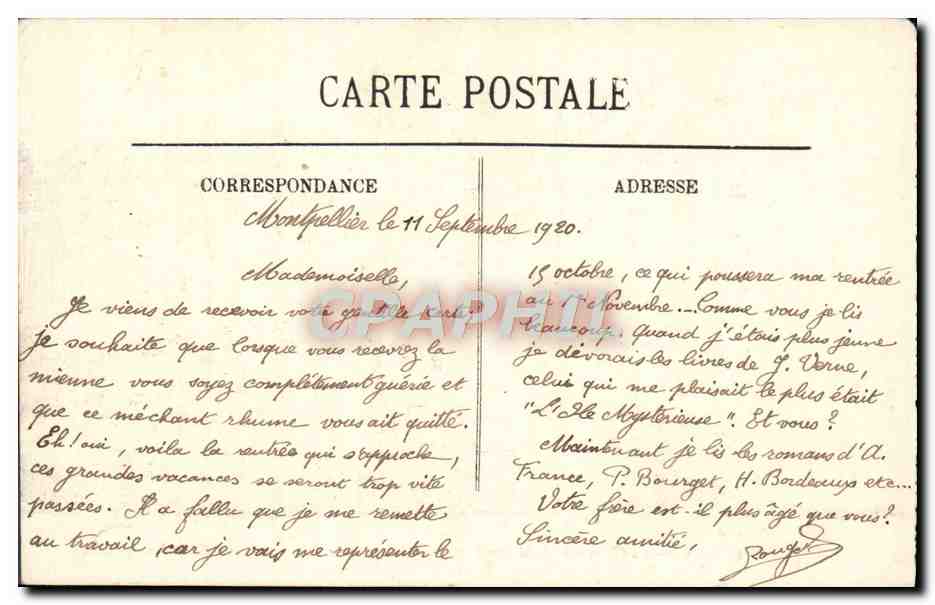 CARTE POSTALE
CORRESPONDANCE
Montpellier le 11 Septembre 1920.
Mademoiselle,
Je viens de recevoir votre gentille carte.
je souhaite que lorsque vous recevrez la
mienne vous soyez complètement guérie et
que ce méchant rhume vous ait quitté.
Eh! oui, voila la rentrée qui s'approche,
ces grandes vacances se seront trop vite
passées. Il a fallu que je me remette
au travail, car je vais me représenter le
ADRESSE
15 octobre, ce qui poussera ma rentrée
au 1er Novembre... Comme vous je lis
beaucoup. quand j'étais plus jeune
je dévorais les livres de J. Verne,
celui qui me plaisait le plus était
"L'Ile Mystérieuse". Et vous?
Maintenant je lis les romans d'A.
France, P. Bourget, H. Bordeaux etc...
Votre frère est-il plus âgé que vous?
Sincère amitié,
CPAPHIL